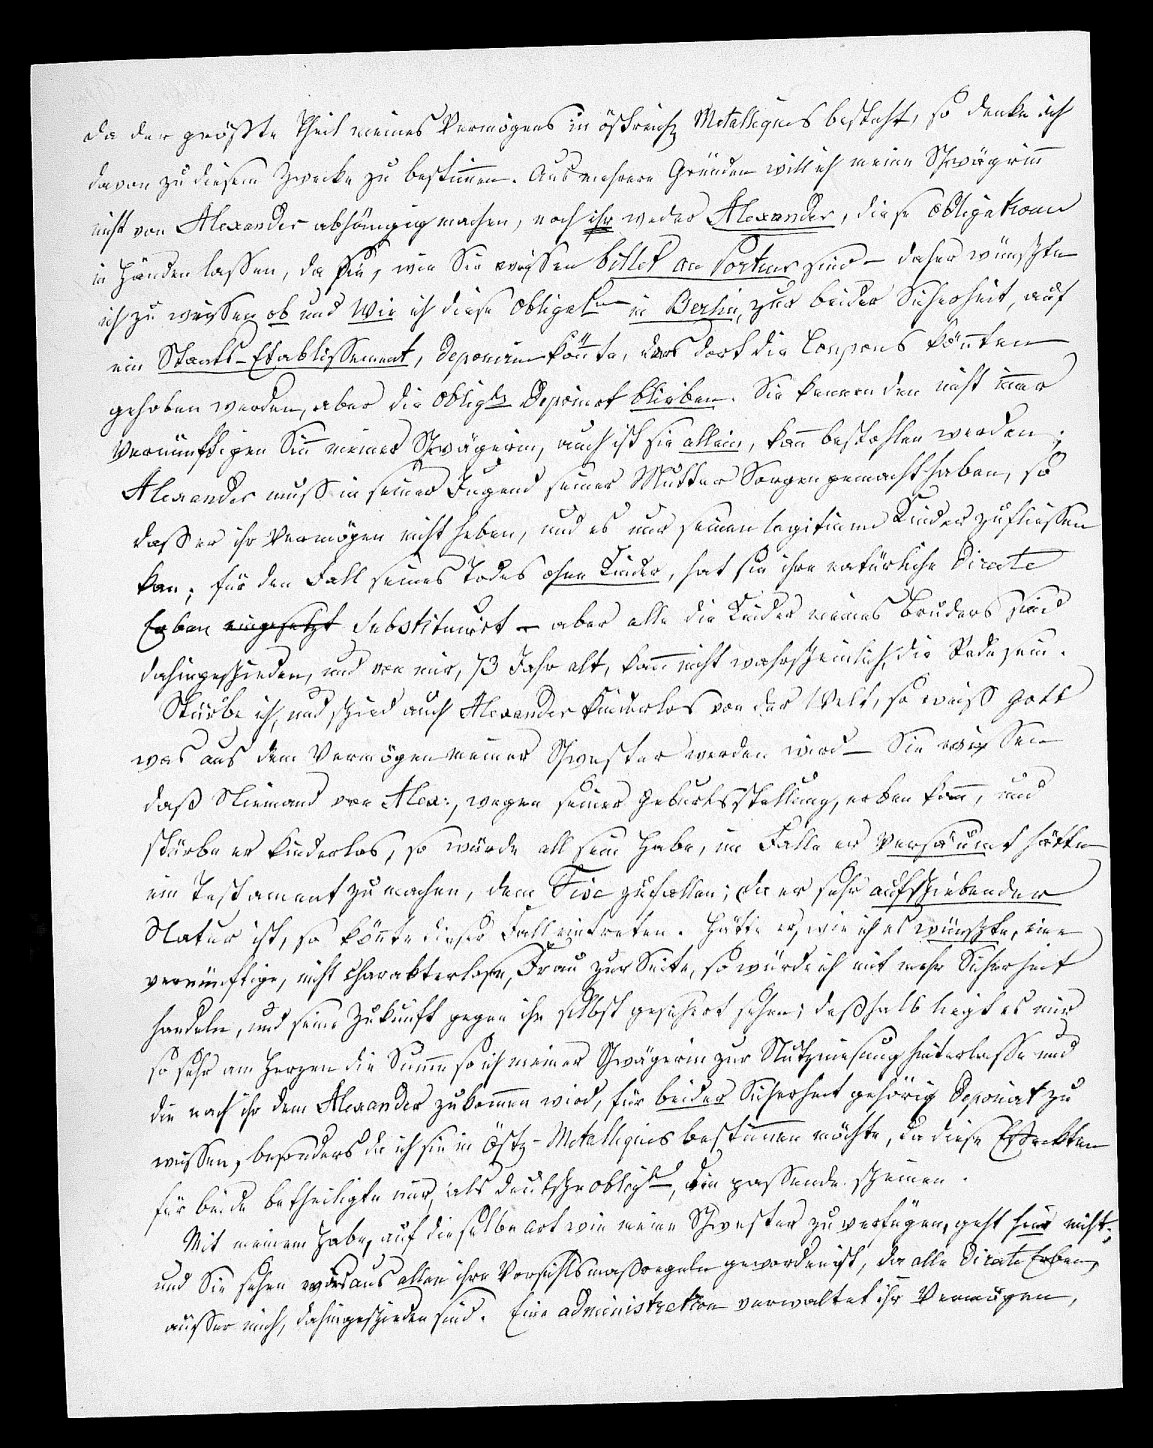 da der größte Theil meines Vermögens in östreich: Metalliques besteht, so denke ich
davon zu diesem Zwecke zu bestimmen. Aus mehrere Gründen will ich meine Schwägerinn
nicht von Alexander abhängig machen, noch ihr weder Alexander, diese Obligationen
in Händen lassen, da sie, wie Sie wissen billet au Porteur sind – daher wünschte
ich zu wissen ob und Wie ich diese Obligat: in Berlin, zur beider Sicherheit, auf
ein Staats-Etablissement, deponiren könnte, das dort die Coupons könnten
gehoben werden, aber die Oblig: Deponirt blieben. Sie kennen den nicht immer
Vernünftigen Sinn meiner Schwägerin, auch ist sie allein, kann bestohlen werden;
Alexander muss in seiner Jugend seiner Mutter Sorgen gemacht haben, so
dass er ihr Vermögen nicht heben, und es nur seinen legitimen Kinder zufliessen
kan; für den Fall seines Todes ohne Kinder, hat sie ihre natürliche Directe
Erben eingesetzt Substituirt – aber alle die Kinder meines Bruders sind
dahingeschieden, und von mir, 73 Jahr alt, kann nicht wahrscheinlich die Rede sein.
Stürbe ich, und schied auch Alexander kinderlos von der Welt, so weiss Gott
was aus dem Vermögen meiner Schwester werden wird – Sie wissen
daß Niemand von Alex:, wegen seiner Geburtsstellung, erben kann, und
stürbe er kinderlos, so würde all sein Habe, im Falle er versäumt hätte
ein Testament zu machen, dem Fisc zufallen; da er sehr aufschiebender
Natur ist, so könnte dieser Fall eintreten. Hätte er, wie ich es wünschte, eine
vernünftige, nicht charakterlose, Frau zur Seite, so würde ich mit mehr Sicherheit
handeln, und seine Zukunft gegen ihn selbst gesichert sehen; deßhalb liegt es mir
so sehr am Herzen die Summe so ich meiner Schwägerin zur Nutzniesung hinterlasse und
die nach ihr dem Alexander zukommen wird, für beider Sicherheit gehörig Deponirt zu
wissen, besonders da ich sie in Östr- Metalliques bestimmen möchte, da diese Effeckten
für beide betheiligte mir, als deutsche Oblig:, die passende scheinen.
Mit meinem Habe, auf dieselbe Art wie meine Schwester zu verfügen, geht hier nicht;
und Sie sehen was aus allen ihre Vorsichtsmaßregeln geworden ist, da alle Directe Erben,
ausser mich, dahingeschieden sind. Eine administration verwaltet ihr Vermögen,